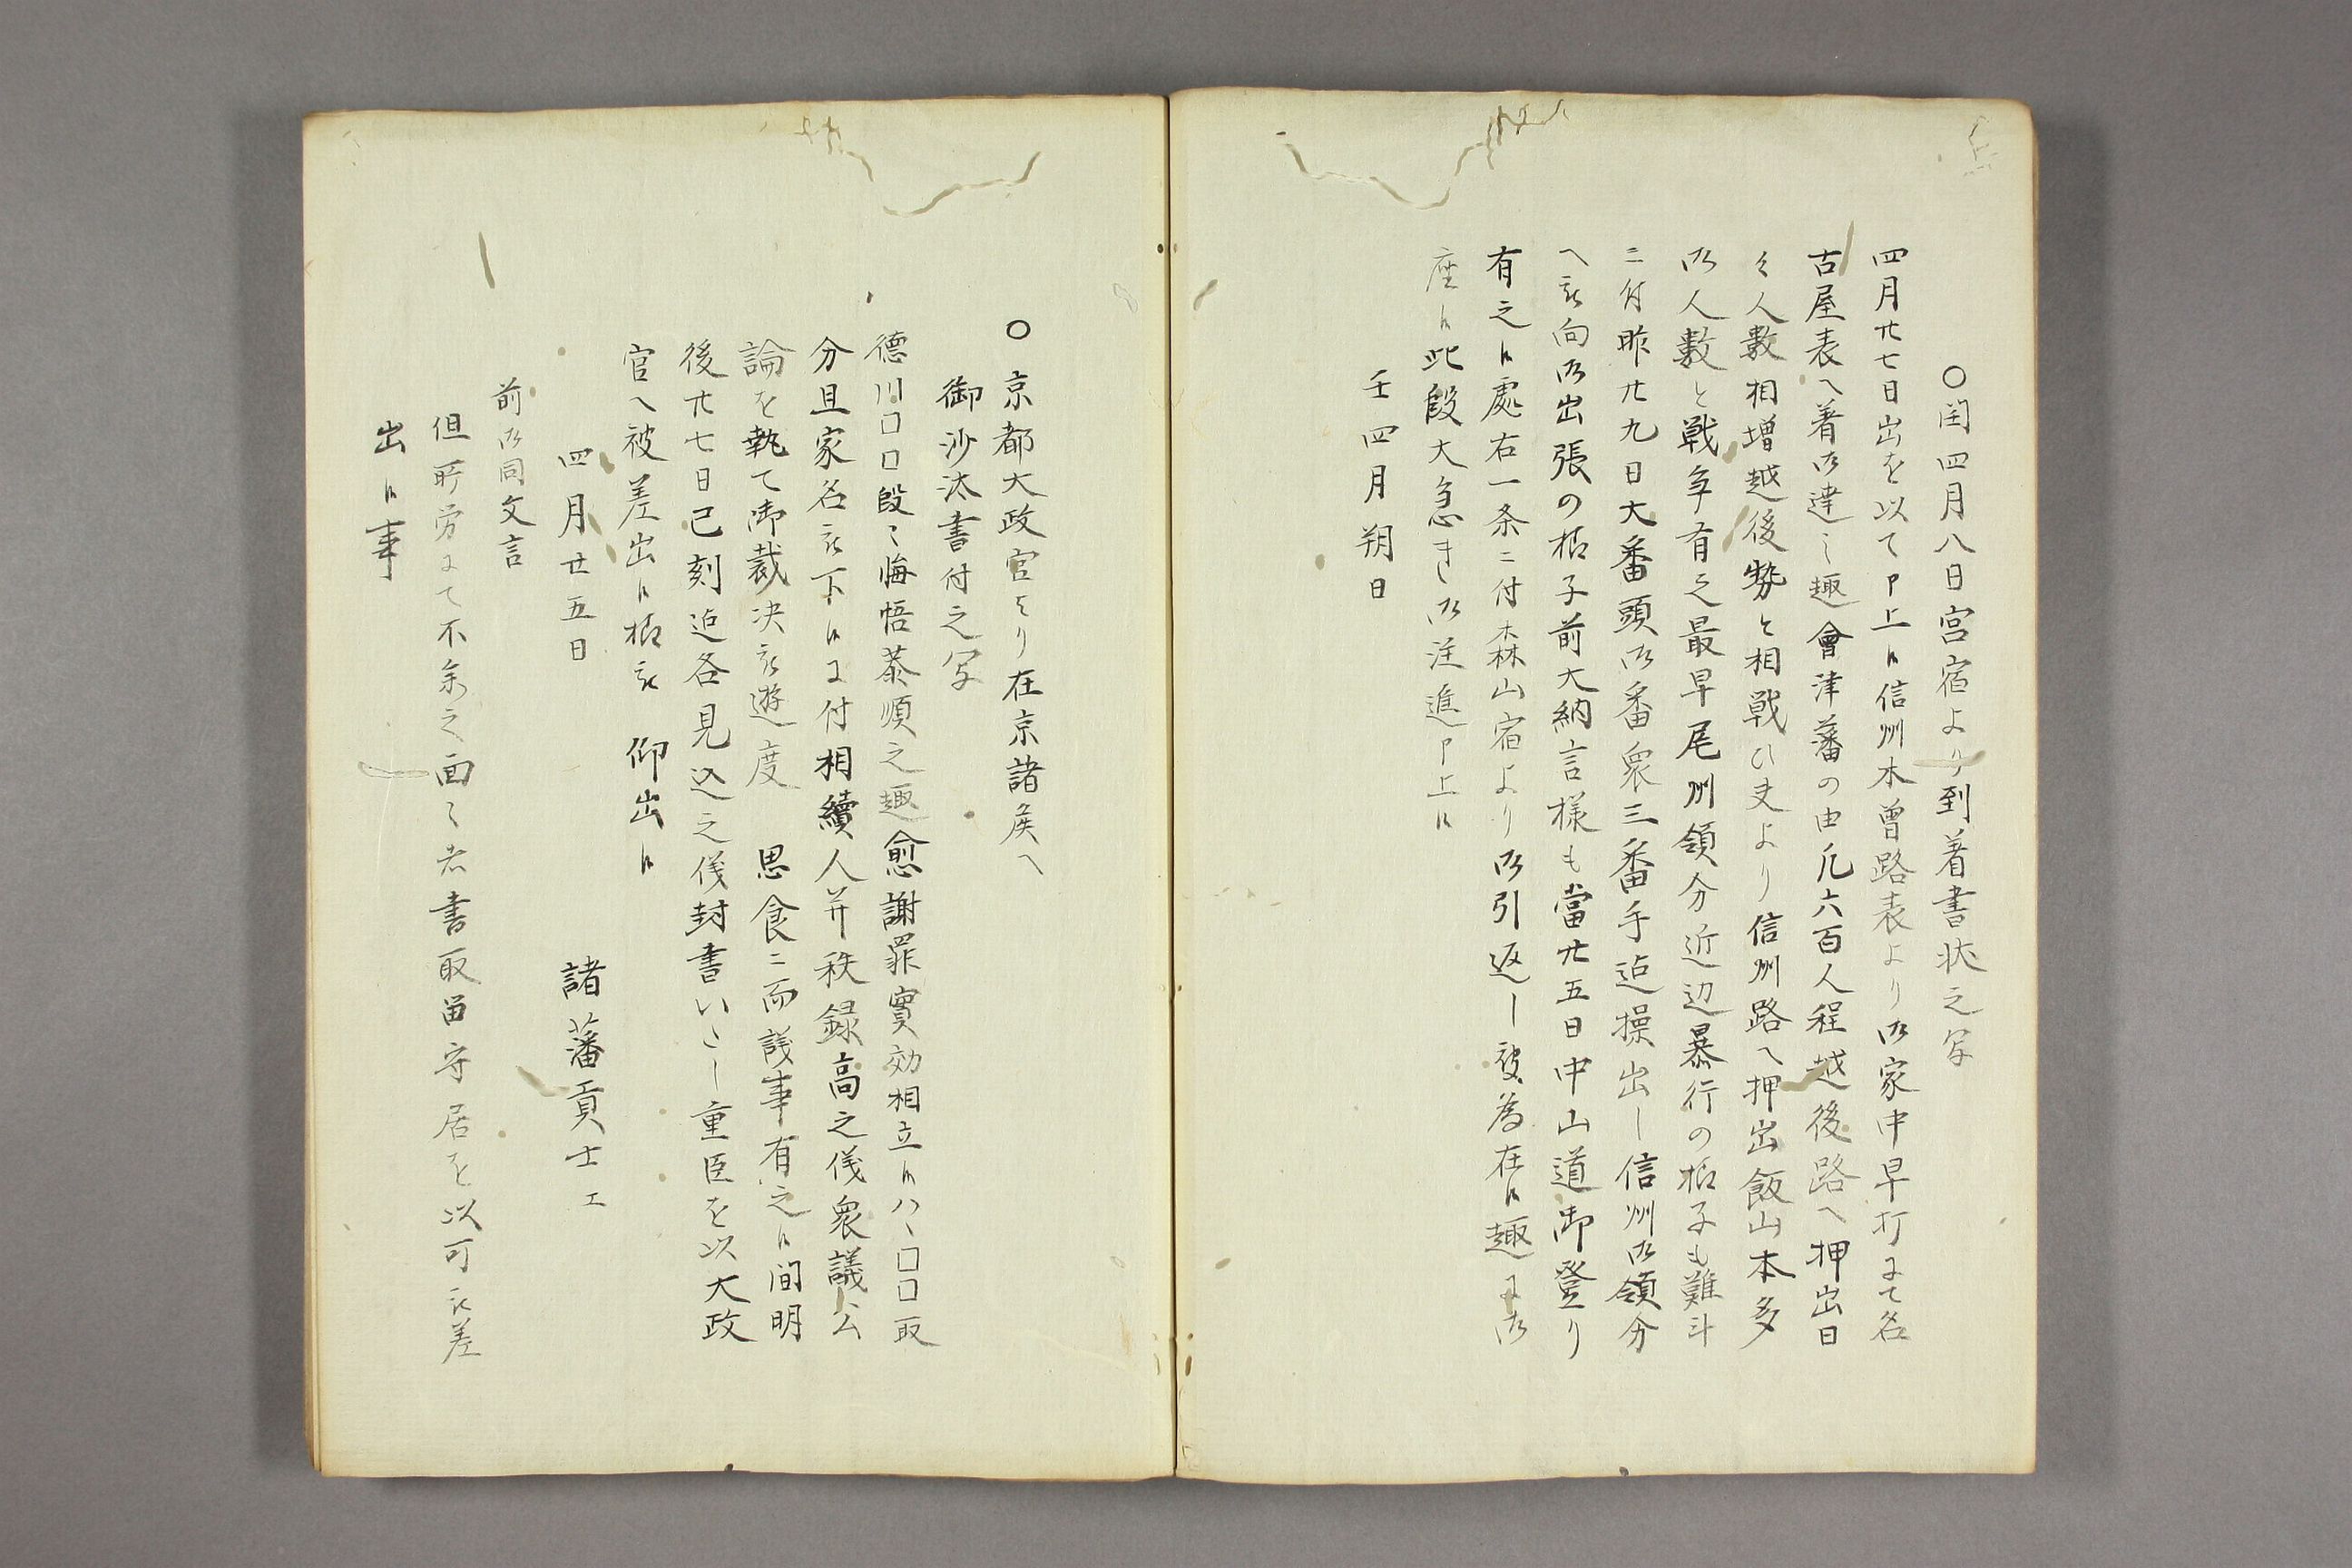 ○閏四月八日宮宿より到着書状之写
四月廿七日出を以て申上候信州木曽路表より御家中早打にて名
古屋表へ着御達之趣會津藩の由凡六百人程越後路へ押出日
々人數相増越後勢と相戦ひ夫より信州路へ押出飯山本多
御人數と戦争有之最早尾州領分近辺暴行の様子も難斗
ニ付昨廿九日大番頭御番衆三番手迠操出し信州御領分
へ被向御出張の様子前大納言様も當廿五日中山道御登り
有之候處右一条ニ付森山宿より御引返し被為在候趣に御
座候此段大急き御注進申上候
壬四月朔日
○京都大政官より在京諸侯へ
御沙汰書付之写
德川口口段々悔悟恭順之趣愈謝罪實効相立候ハヽ口口取
分且家名被下候に付相續人并秩録高之儀衆議公
論を執て御裁决被遊度　思食ニ而議事有之候間明
後廿七日已刻迠各見込之儀封書いたし重臣を以大政
官へ被差出候様被　仰出候
四月廿五日
諸藩貢士エ
前御同文言
但所労にて不参之面々者書取留守居を以可被差
出候事